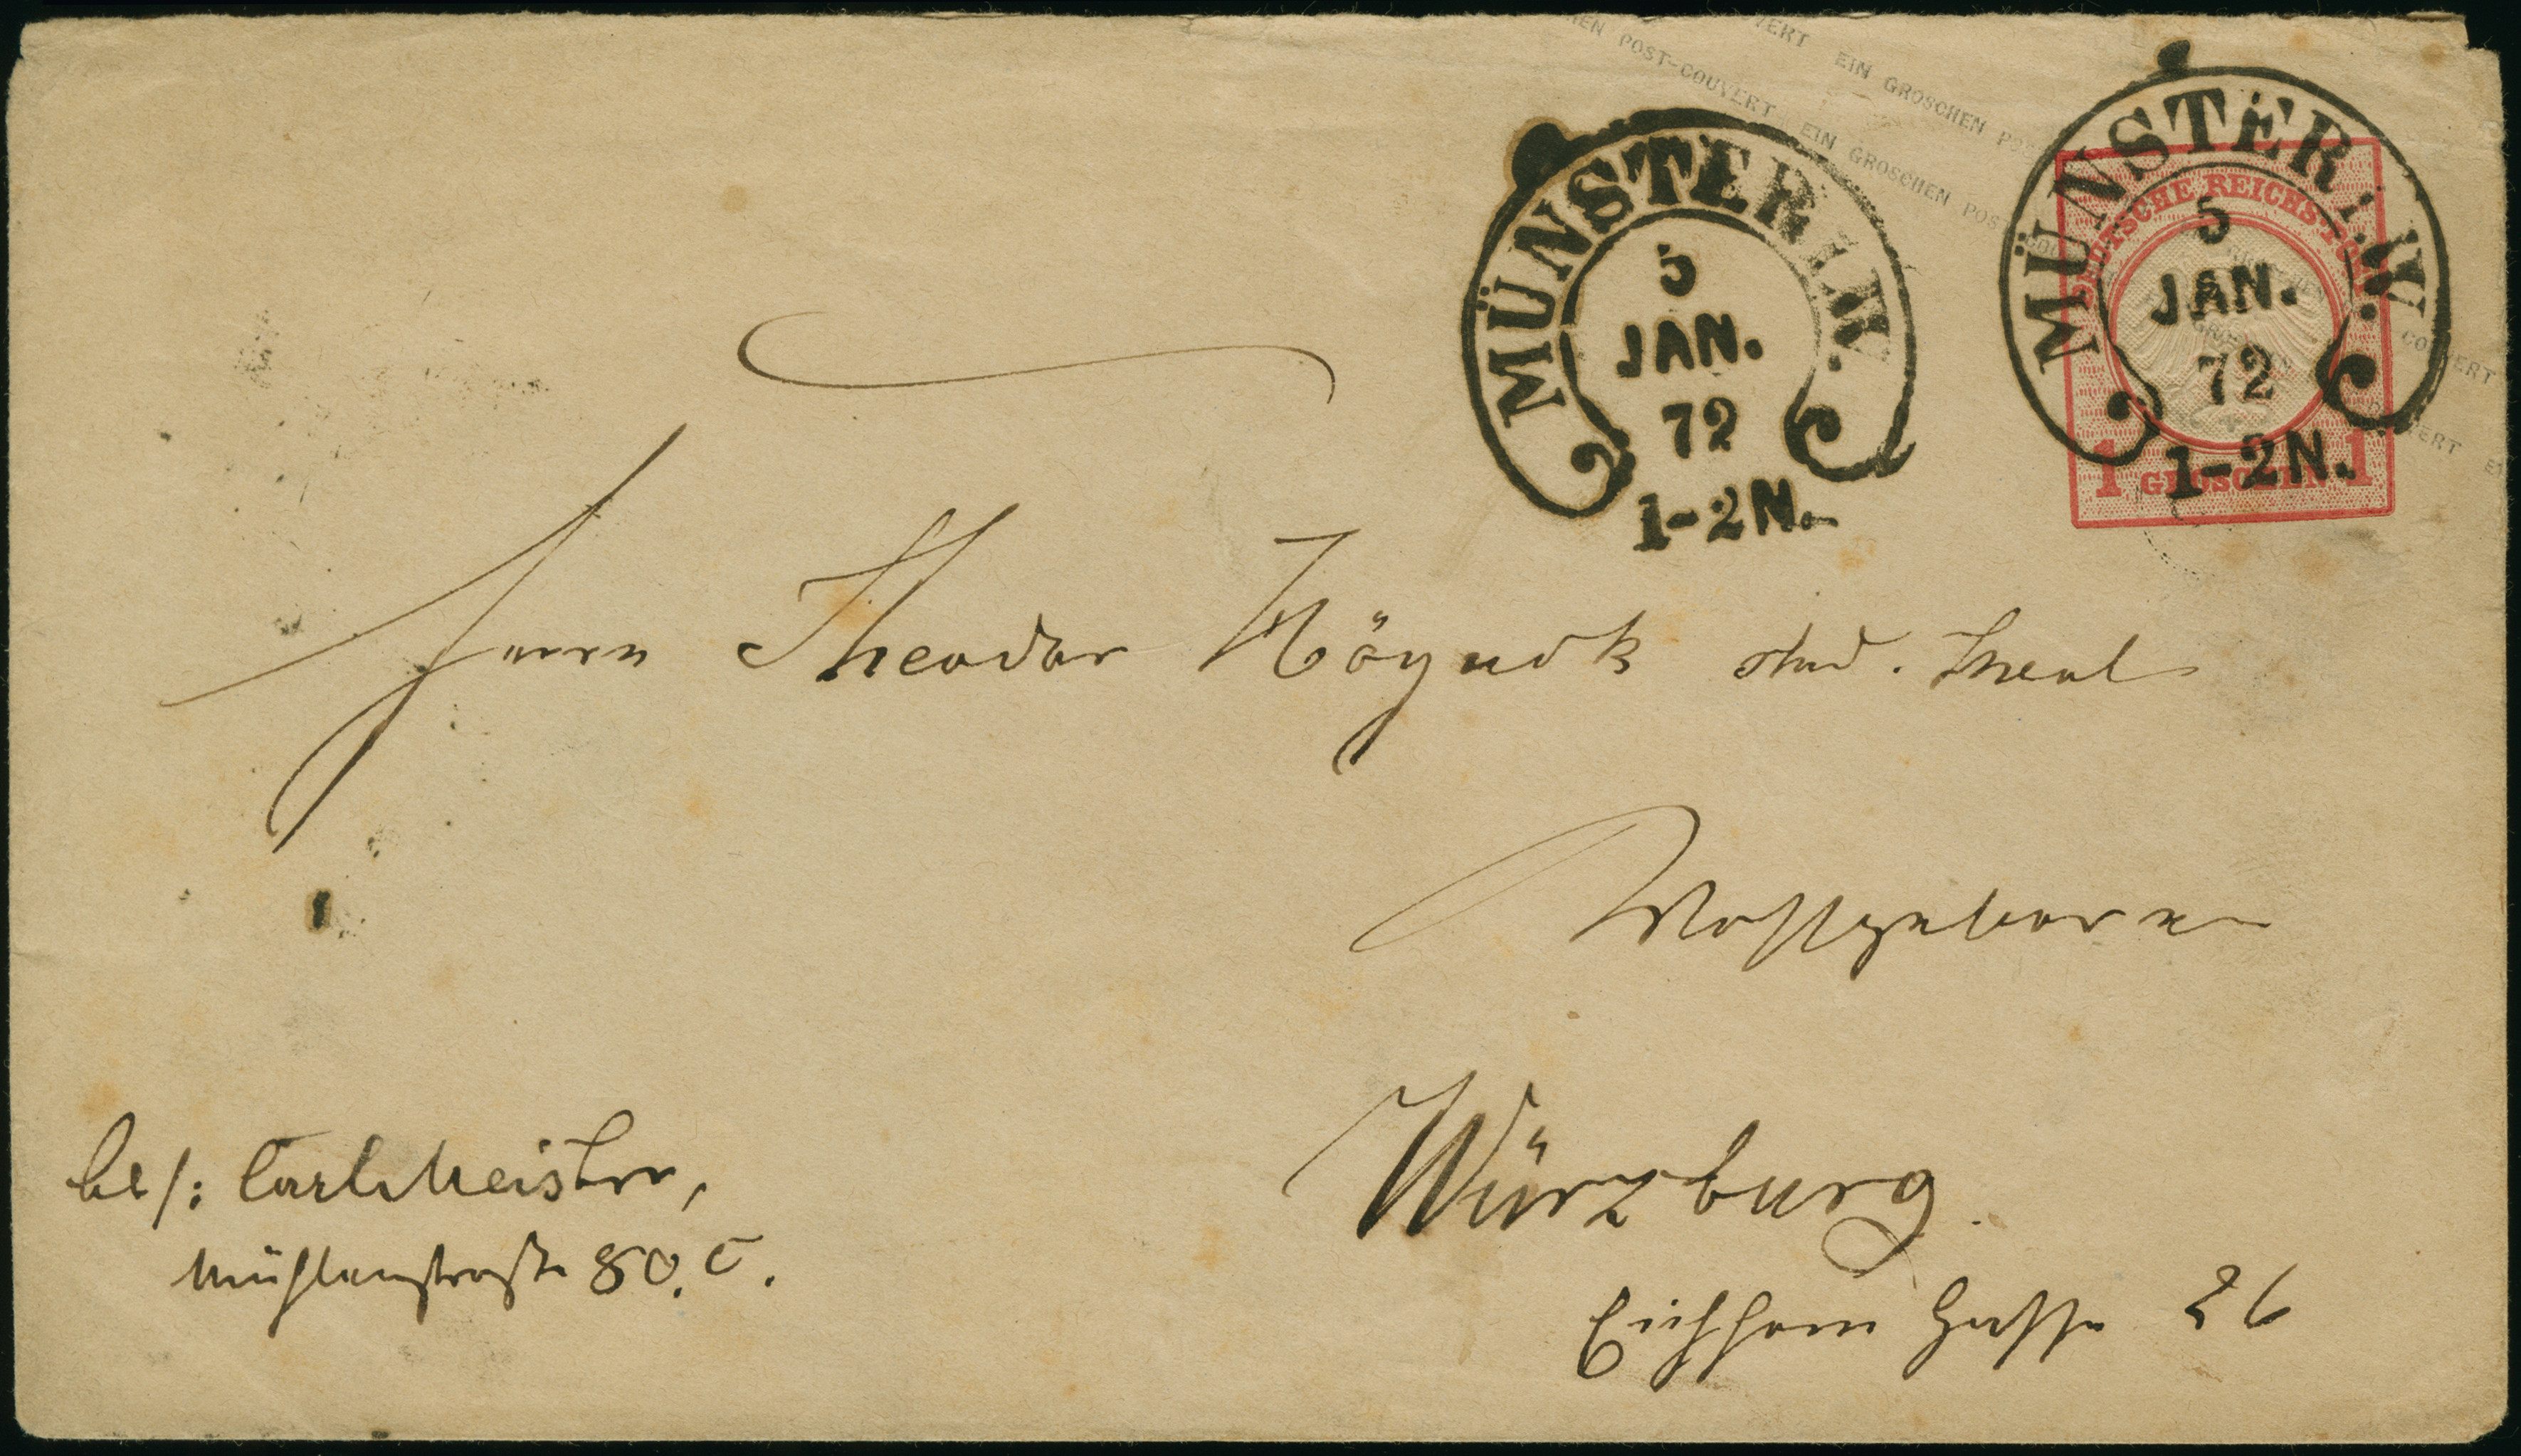 EIN GROSCHEN POST-COUVERT EIN GROSCHEN
MÜNSTER i.W.
5
JAN.
72
1-2N.
MÜNSTER i.W.
5
JAN.
72
1-2N.
DEUTSCHE REICHS-POST
1 GROSCHEN 1
Herrn Theodor stud. theol
Wohlgeboren
Würzburg.
Eichhorn Gasse 26
Carl Meister,
Mühlenstraße 80. C.